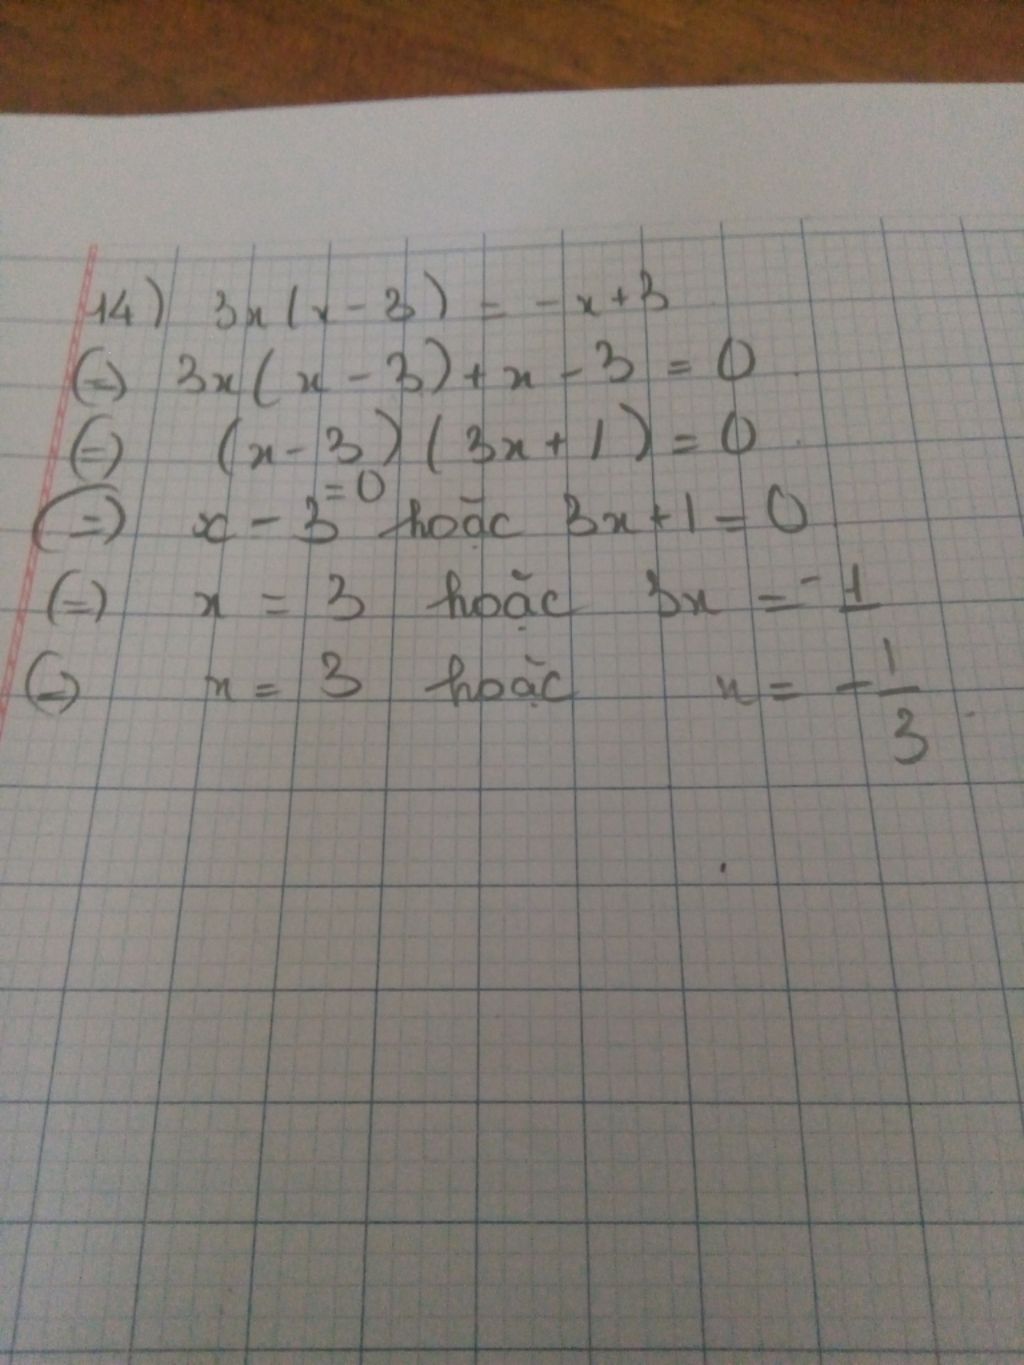 14) 3x(x - 3) = -x+3
(=) 3x(x - 3) + x - 3 = 0
(=) (x - 3)(3x + 1) = 0
(=) x - 3 = 0 hoặc 3x + 1 = 0
(=) x = 3 hoặc 3x = -1
(=) x = 3 hoặc x = -1/3